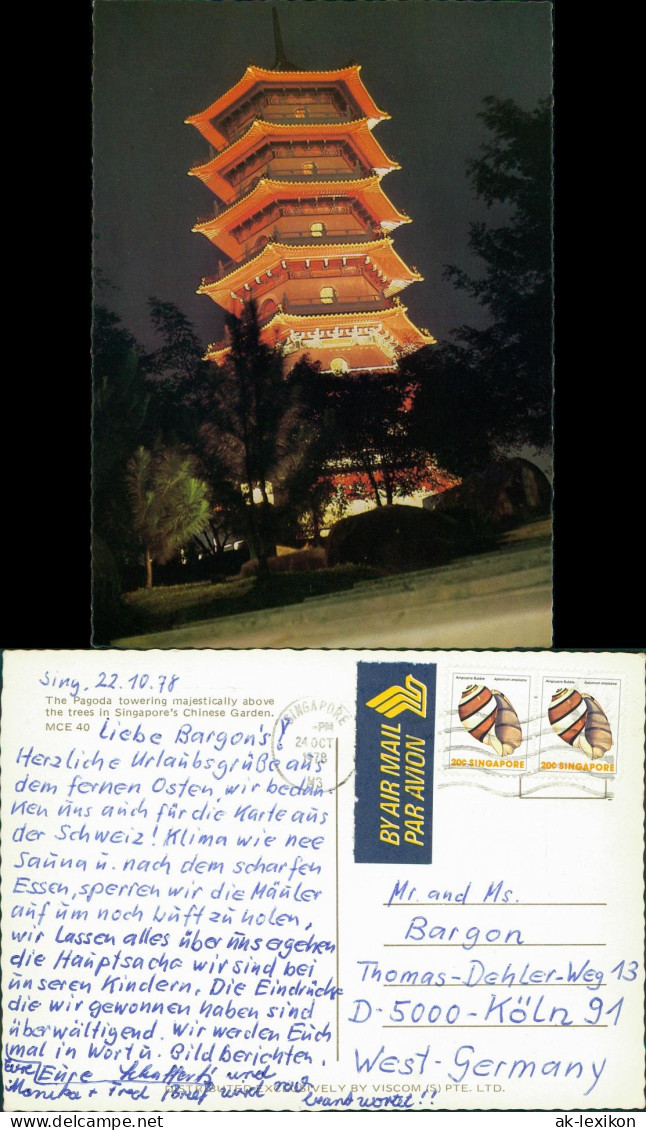 Sing, 22.10.78
The Pagoda towering majestically above
the trees in Singapore's Chinese Garden.
MCE 40
Liebe Bargon's!
Herzliche Urlaubsgrüße aus
dem fernen Osten, wir bedan-
ken uns auch für die Karte aus
der Schweiz! Klima wie nee
Sauna u. nach dem scharfen
Essen, sperren wir die Mäuler
auf um noch Luft zu holen,
wir lassen alles über uns ergehen
die Hauptsache wir sind bei
unseren Kindern. Die Eindrücke
die wir gewonnen haben sind
überwältigend. Wir werden Euch
mal in Wort u. Bild berichten.
Eure und
Monika + Fred Brief wird noch
beantwortet!!
DISTRIBUTED EXCLUSIVELY BY VISCOM (S) PTE. LTD.
SINGAPORE
-PM
24 OCT
1978
BY AIR MAIL
PAR AVION
20c SINGAPORE
20c SINGAPORE
Mr. and Ms.
Bargon
Thomas-Dehler-Weg 13
D-5000-Köln 91
West-Germany
ak-lexikon